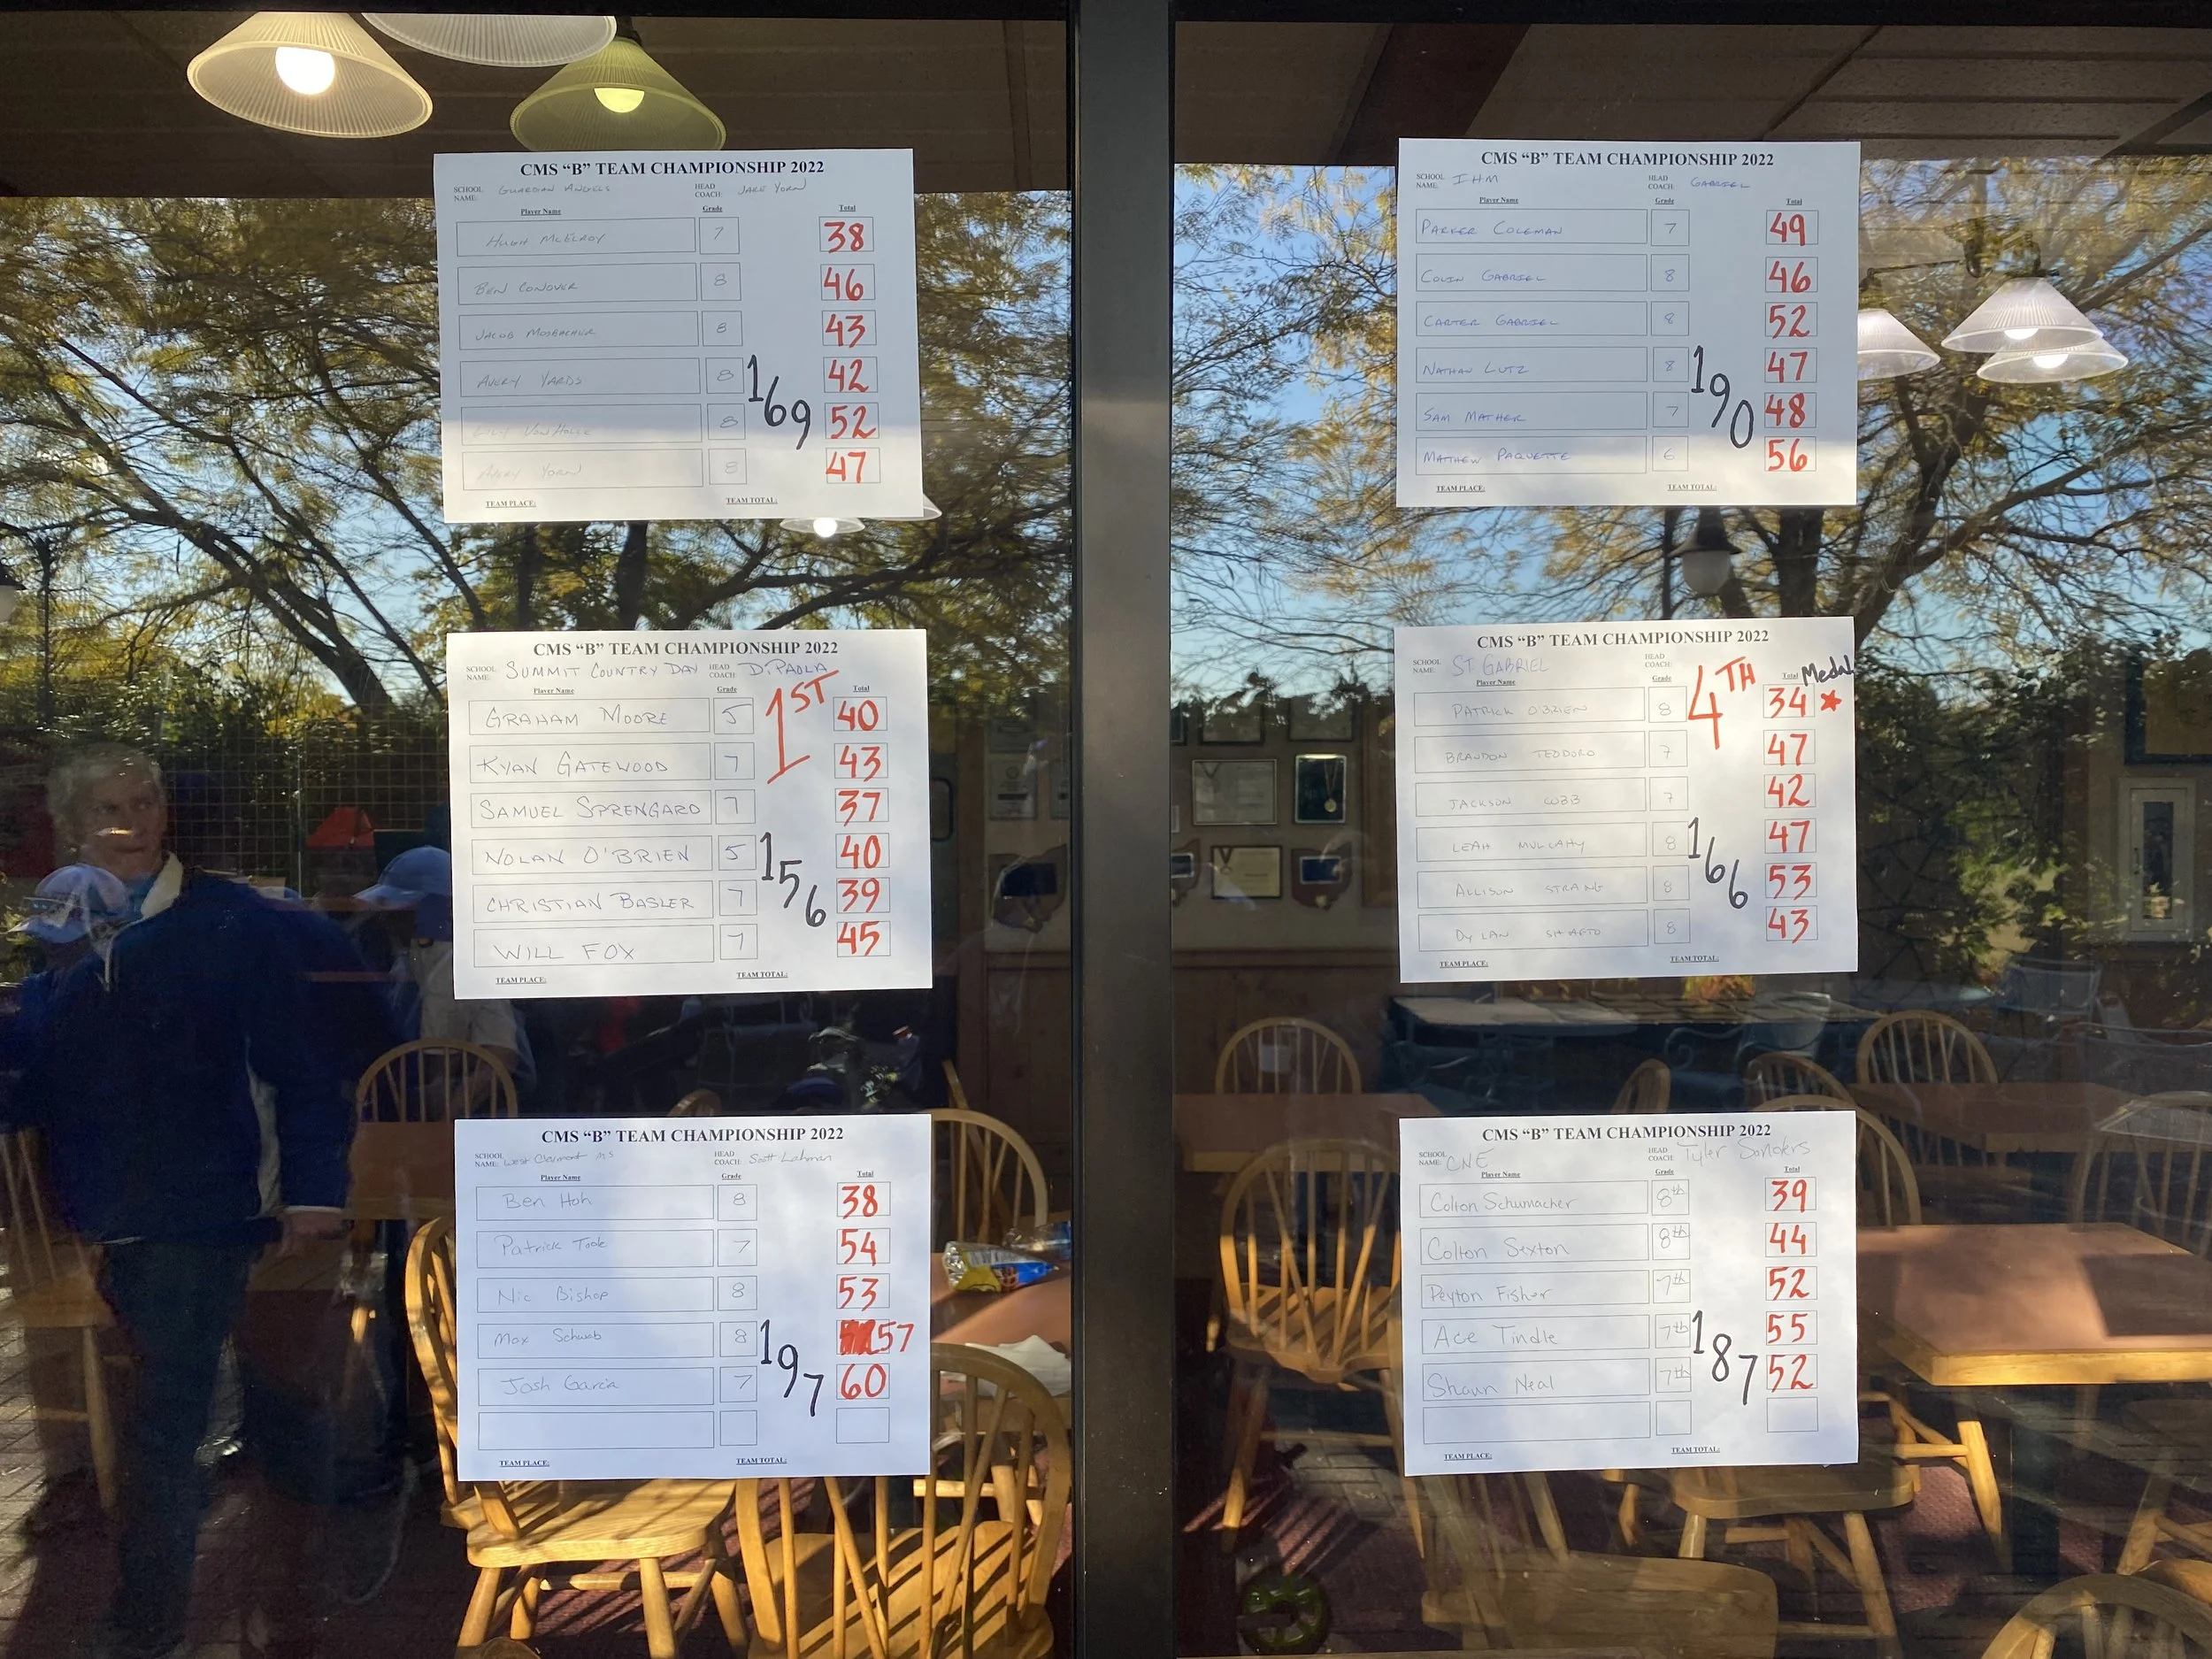 CMS “B” TEAM CHAMPIONSHIP 2022
SCHOOL NAME: GUARDIAN ANGELS HEAD COACH: JAKE YORN
Player Name Grade Total
HUGH MCELROY 7 38
BEN CONOVER 8 46
JACOB MOSBACHER 8 43
AVERY YARDS 8 42
LILY VONHOLLE 8 52
AVERY YORN 8 47
169
TEAM PLACE: TEAM TOTAL:
CMS “B” TEAM CHAMPIONSHIP 2022
SCHOOL NAME: SUMMIT COUNTRY DAY HEAD COACH: DIPAOLA
Player Name Grade Total
1ST
GRAHAM MOORE 5 40
KYAN GATEWOOD 7 43
SAMUEL SPRENGARD 7 37
NOLAN O'BRIEN 5 40
CHRISTIAN BASLER 7 39
WILL FOX 7 45
156
TEAM PLACE: TEAM TOTAL:
CMS “B” TEAM CHAMPIONSHIP 2022
SCHOOL NAME: West Clermont MS HEAD COACH: Scott Lehman
Player Name Grade Total
Ben Hoh 8 38
Patrick Toole 7 54
Nic Bishop 8 53
Max Schwab 8 57
Josh Garcia 7 60
197
TEAM PLACE: TEAM TOTAL:
CMS “B” TEAM CHAMPIONSHIP 2022
SCHOOL NAME: IHM HEAD COACH: GABRIEL
Player Name Grade Total
PARKER COLEMAN 7 49
COLIN GABRIEL 8 46
CARTER GABRIEL 8 52
NATHAN LUTZ 8 47
SAM MATHER 7 48
MATHEW PAQUETTE 6 56
190
TEAM PLACE: TEAM TOTAL:
CMS “B” TEAM CHAMPIONSHIP 2022
SCHOOL NAME: ST GABRIEL HEAD COACH:
Player Name Grade Total Medal
4TH
PATRICK O'BRIEN 8 34
BRANDON TEODORO 7 47
JACKSON COBB 7 42
LEAH MULCAHY 8 47
ALLISON STRAING 8 53
DYLAN SHAFTO 8 43
166
TEAM PLACE: TEAM TOTAL:
CMS “B” TEAM CHAMPIONSHIP 2022
SCHOOL NAME: CNE HEAD COACH: Tyler Sanders
Player Name Grade Total
Colton Schumacher 8th 39
Colton Sexton 8th 44
Peyton Fisher 7th 52
Ace Tindle 7th 55
Shaun Neal 7th 52
187
TEAM PLACE: TEAM TOTAL: